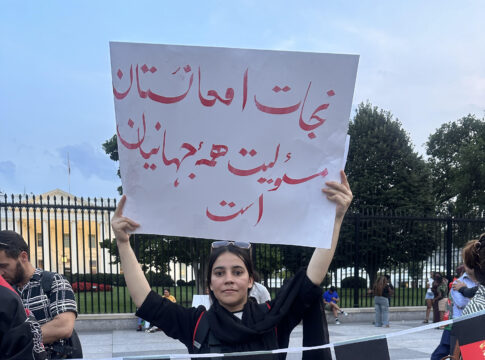 نجات افغانستان
مسؤلیت همهٔ جهانیان
است